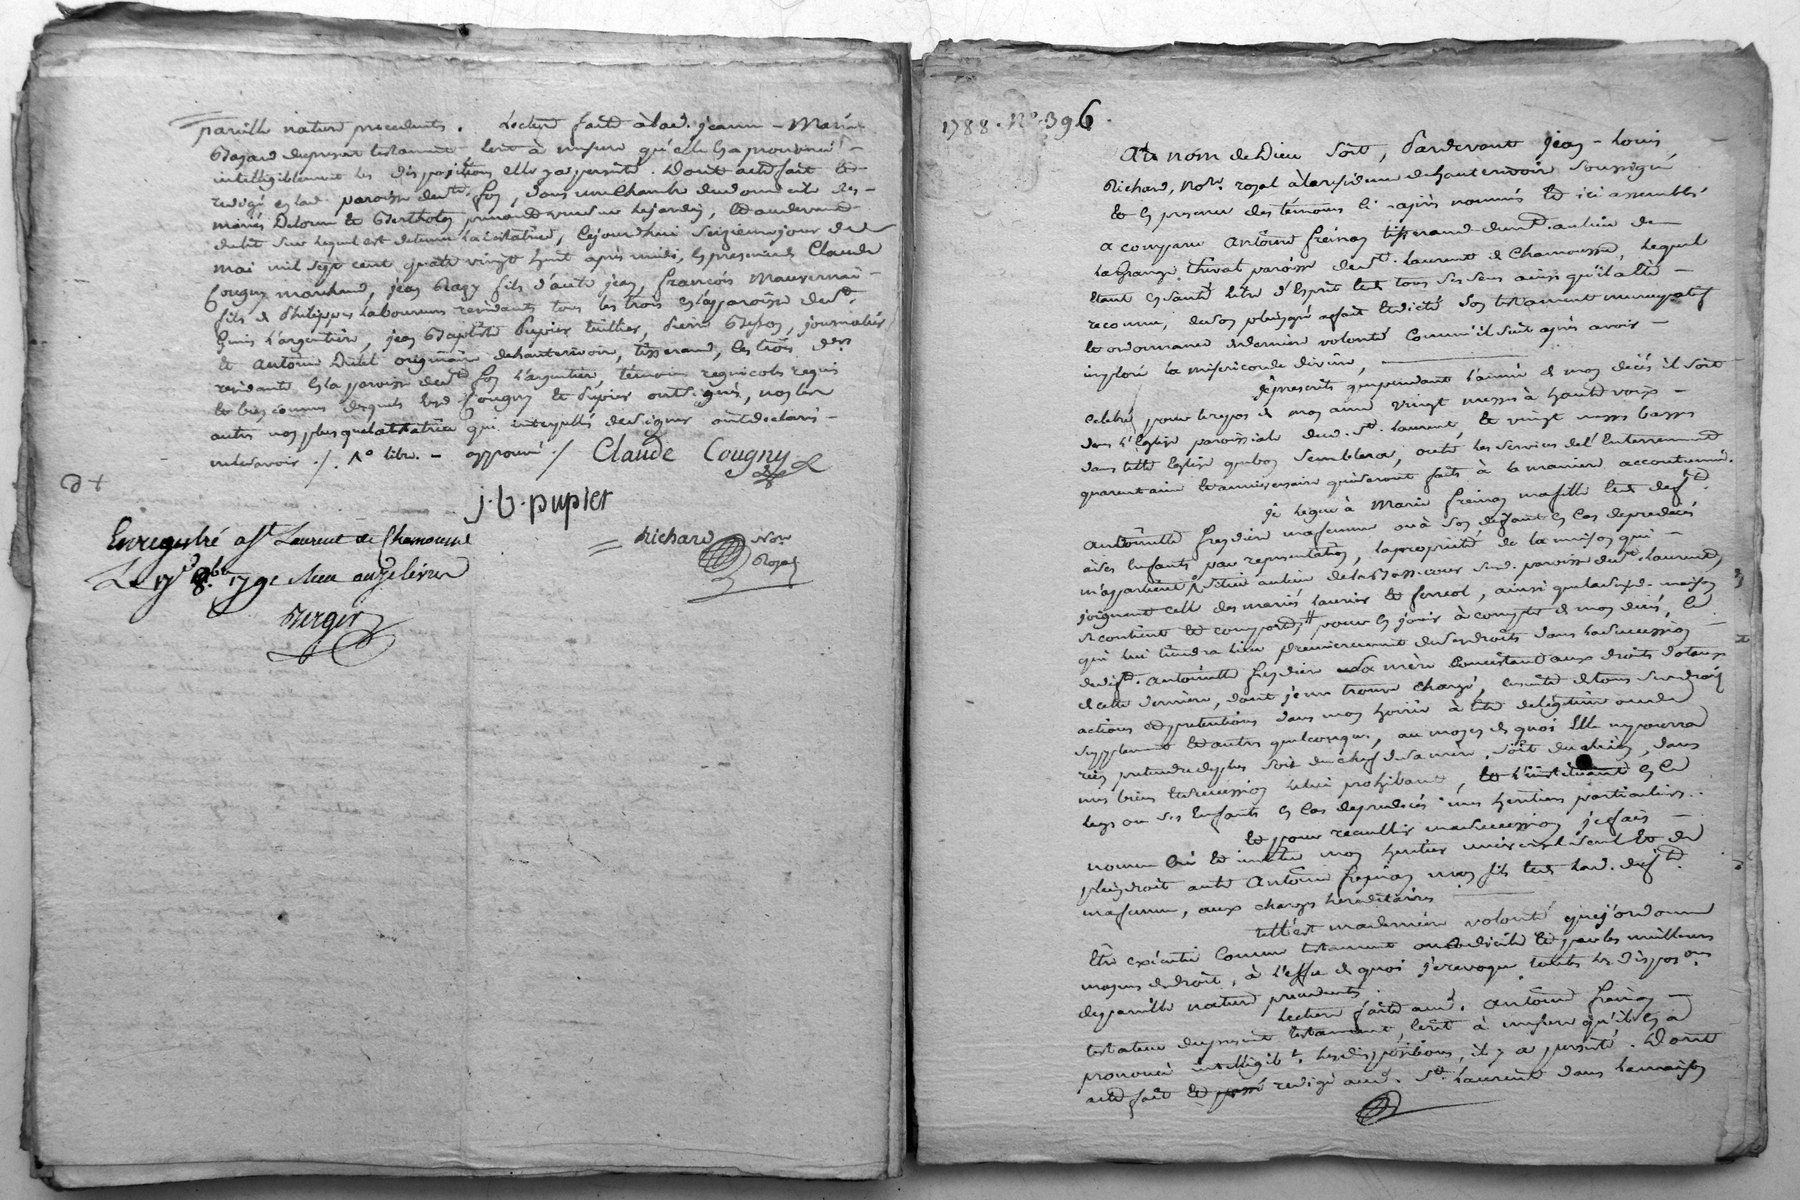 pareille nature precedents. Lecture faite à lad. jeanne - Marie
du present testament - écrit à mesure qu'elle l'a prononcé
intelligiblement les dispositions elle y a persisté. Dont acte fait et
redigé en lad. paroisse de ste. foy, dans une chambre du domicile des -
mariés Delorme et
du lit sur lequel est detenue la testatrice, cejourd'hui seizieme jour de
mai mil sept cent quatre vingt huit après midi, en presence de Claude
Cougny marchand, jean fils d'autre jean, françois
fils de Philippes laboureurs residents tous les trois en la paroisse de st.
Genis L'argentiere, jean Baptiste Pupier tuillier, Pierre journalier
et Antoine originaire de hauterivoire, tisserand, les trois
residants en la paroisse de ste foy L'argentiere temoins regnicoles requis
et bien connus desquels lesd. Cougny et Pupier ont signé, non les
autres non plus que la testatrice qui interpellés de signer ont declaré -
ne le savoir ./. approuvé ./ Claude Cougny
j. b. pupier
Enregistré a St Laurent de Chamousset
Richard Nore.
Royal
Le 17 8bre 179
Berger
1788. No. 396.
Au nom de Dieu soit, Pardevant jean - louis
Richard, Nore. royal à la residence de hauterivoire soussigné
et en presence des témoins ci-après nommés et ici assemblés
a comparu Antoine freinay tisserand au lieu de
la Grange Thival paroisse de st. Laurent de Chamousset, Lequel
étant en santé libre d'Esprit et de tous ses sens ainsi qu'il a été -
reconnu, de son plein gré a fait et dicté son testament nuncupatif
et ordonnance de derniere volonté comme il suit après avoir -
imploré la misericorde divine,
Je prescrits que pendant l'année de mon decès il soit
celebré, pour le repos de mon ame vingt messes à haute voix -
dans L'Eglise paroissiale dud. St. Laurent, et vingt messes basses
dans telle Eglise que bon semblera, outre les services de l'Enterrement
quarantaine et anniversaire qui seront faits à la maniere accoutumée.
Je legue à Marie freinay ma fille et de deft.
Antoinette freydiere ma femme ou à son deffaut en cas de predecès
à ses Enfants par representation, la propriété de la maison qui -
m'appartient située au lieu de la Basse-cour sud. paroisse de st. laurent,
joignant celle des mariés laurier et ferreol, ainsi que lad. maison
se contient et comporte pour en jouir à compter de mon décès, ce
qui lui tiendra lieu premierement de ses droits dans la succession -
de ded. Antoinette freydiere sa mère consistant aux droits dotaux
de cette derniere, dont je me trouve chargé, ensuite de tous ses droits
actions et pretentions dans mon hoirie à titre de legitime ou de
supplement et autres quelconques, au moyen de quoi Elle ne pourra
rien pretendre de plus soit du chef de sa mère, soit du mien, dans
mes biens et succession le lui prohibant, et l'instituant en ce
legs ou ses Enfants en cas de predecès mes heritiers particuliers.
et pour recueillir ma succession je fais -
nomme Crée et institue mon heritier universel seul et de
plein droit Antoine freinay mon fils et de lad. defte.
ma femme, aux charges héréditaires
telle est ma derniere volonté que j'ordonne
être exécutée comme testament ou codicile et par les meilleurs
moyens de droit, à l'effet de quoi je revoque toutes les disposons
de pareille nature precedentes.
Lecture faite aud. Antoine freinay -
testateur du present testament, écrit à mesure qu'il l'a
prononcé intelligiblt. les dispositions, il y a persisté. Dont
acte fait et passé redigé aud. St. Laurent dans la maison